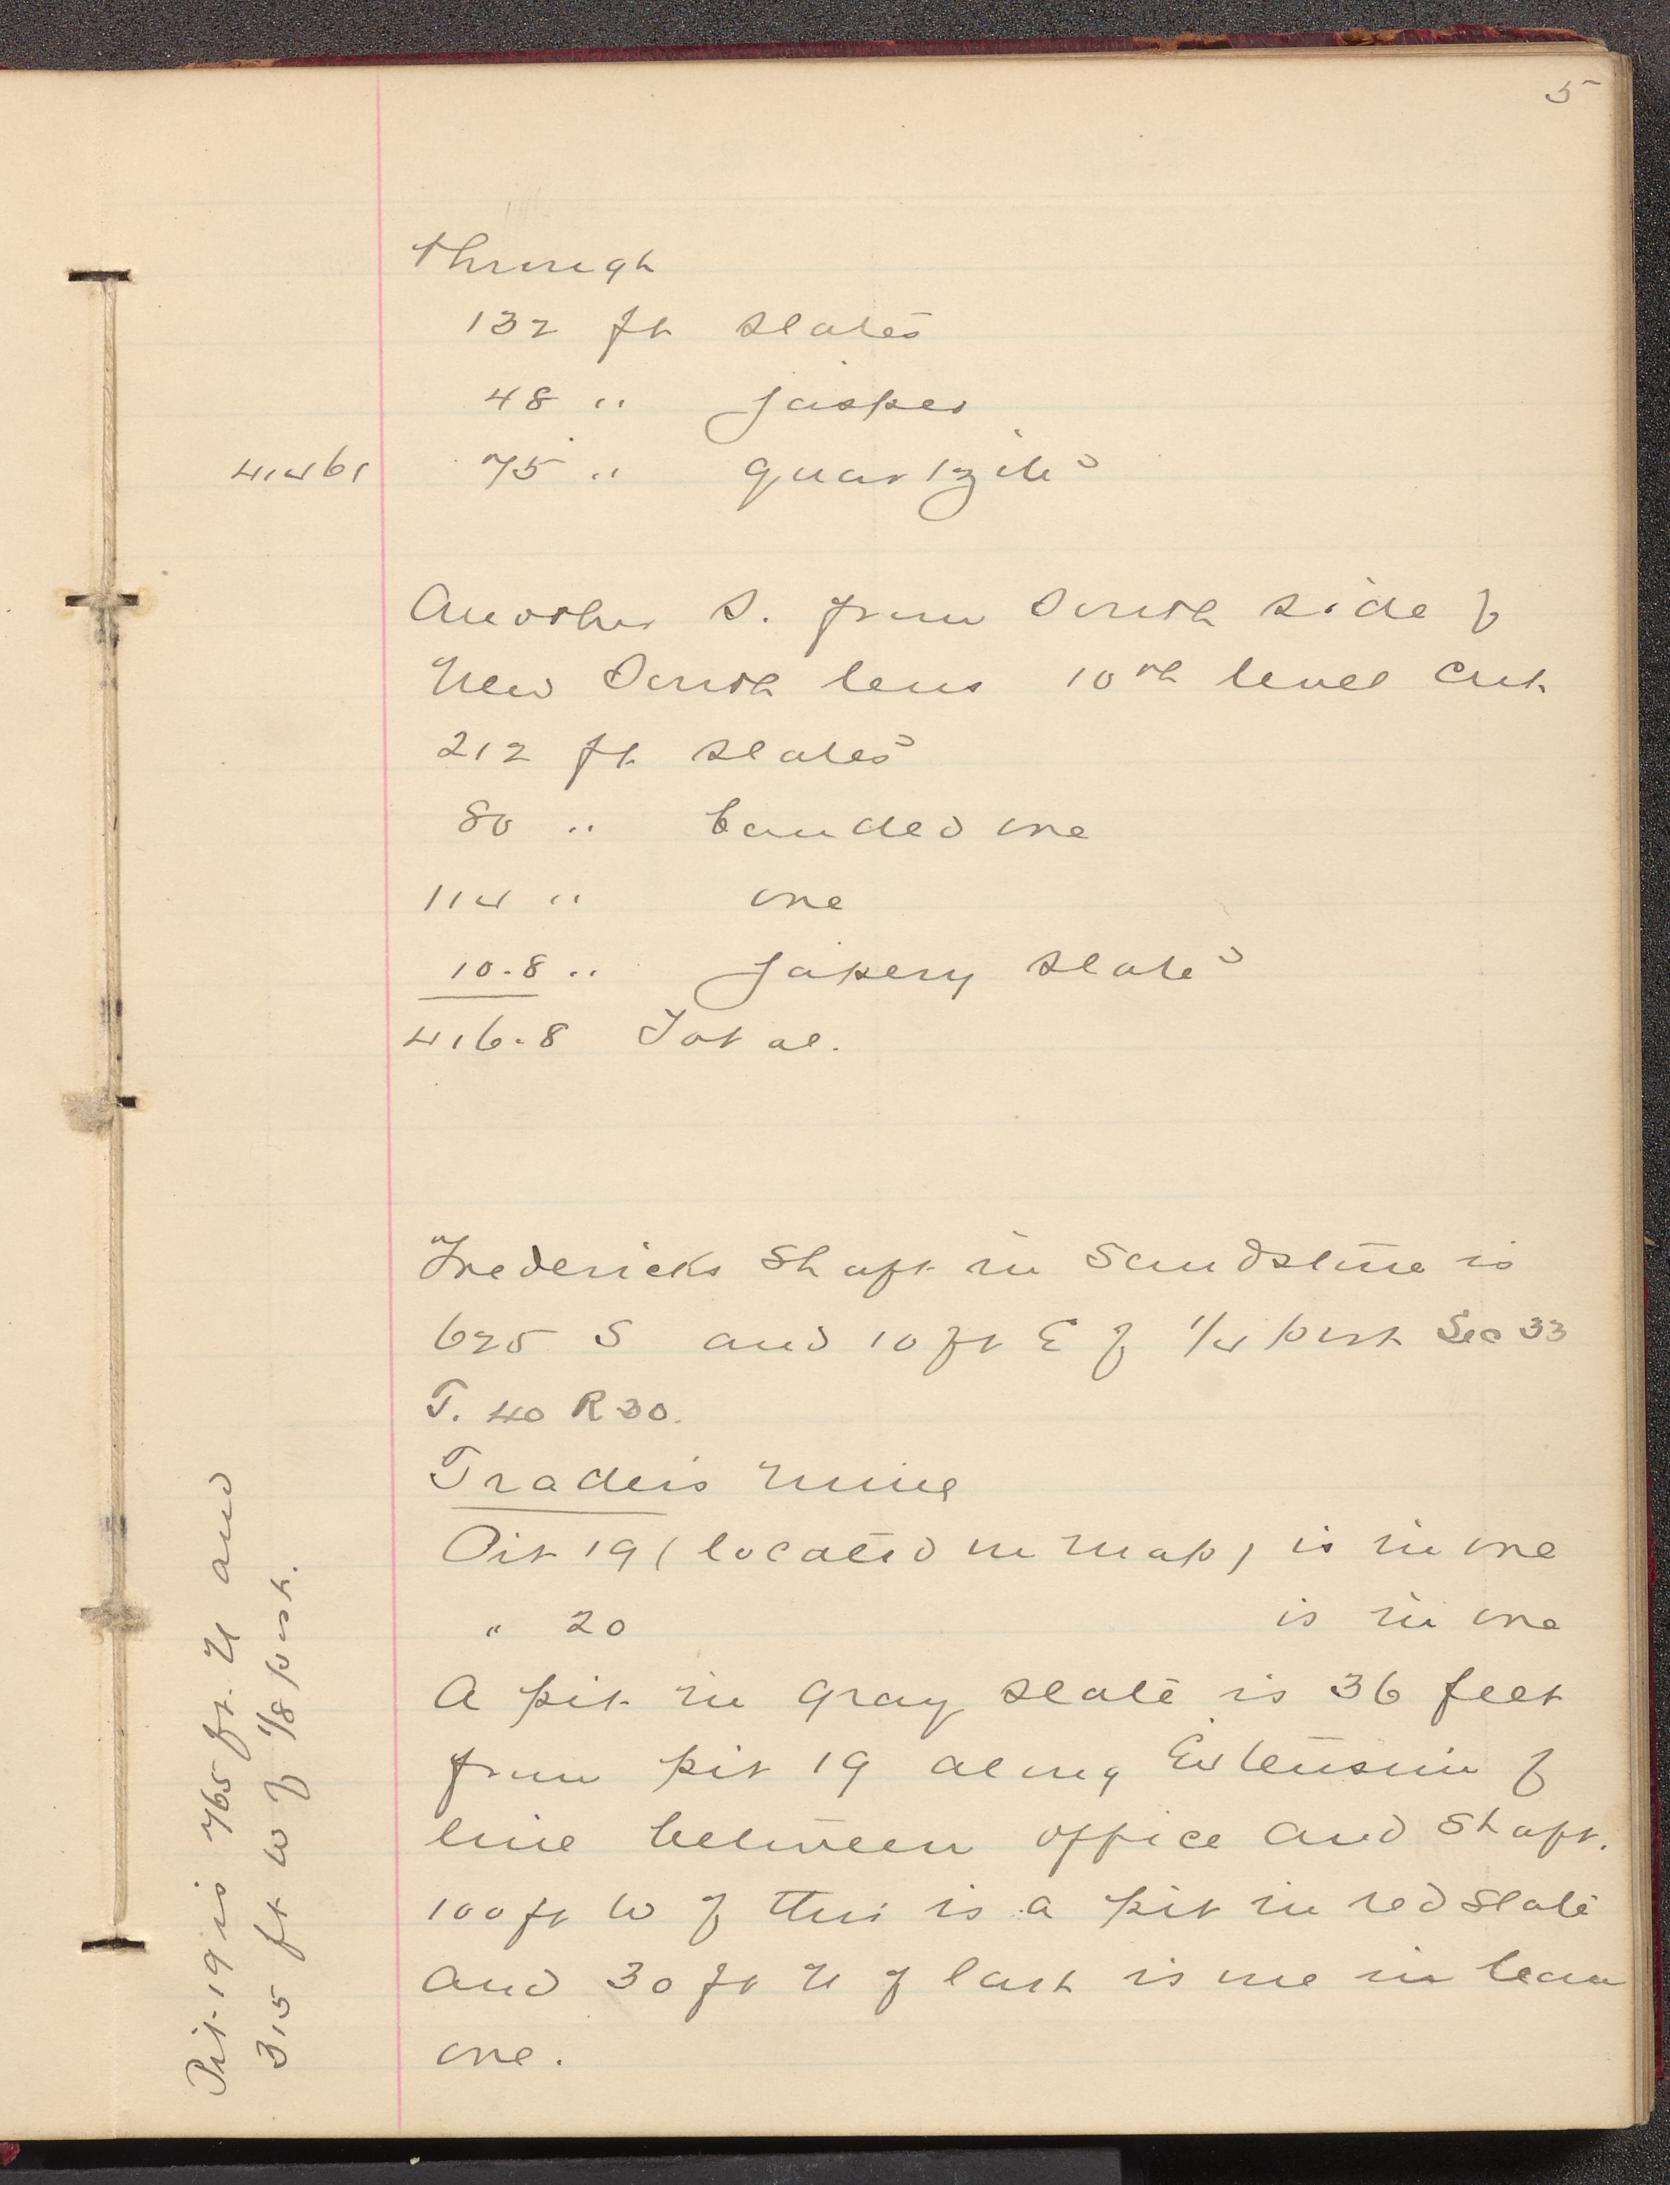 5
through
132 ft slates
48 " jasper
41461 75 " quartzite
Another S. from South side of
New South lens 10th level cut
212 ft slates
80 " banded ore
114 " ore
10.8 " jaspery slate
416.8 Total.
Fredericks Shaft in Sandstone is
625 S and 10 ft E of 1/4 post Sec 33
T. 40 R 30.
Traders Mine
Pit 19 (located on map) is in ore
" 20 is in ore
A pit in gray slate is 36 feet
from pit 19 along Extension of
line between office and Shaft.
100 ft W of this is a pit in red slate
and 30 ft N of last is one in lean
ore.
Pit 19 is 765 ft. N and
315 ft W of 1/8 post.